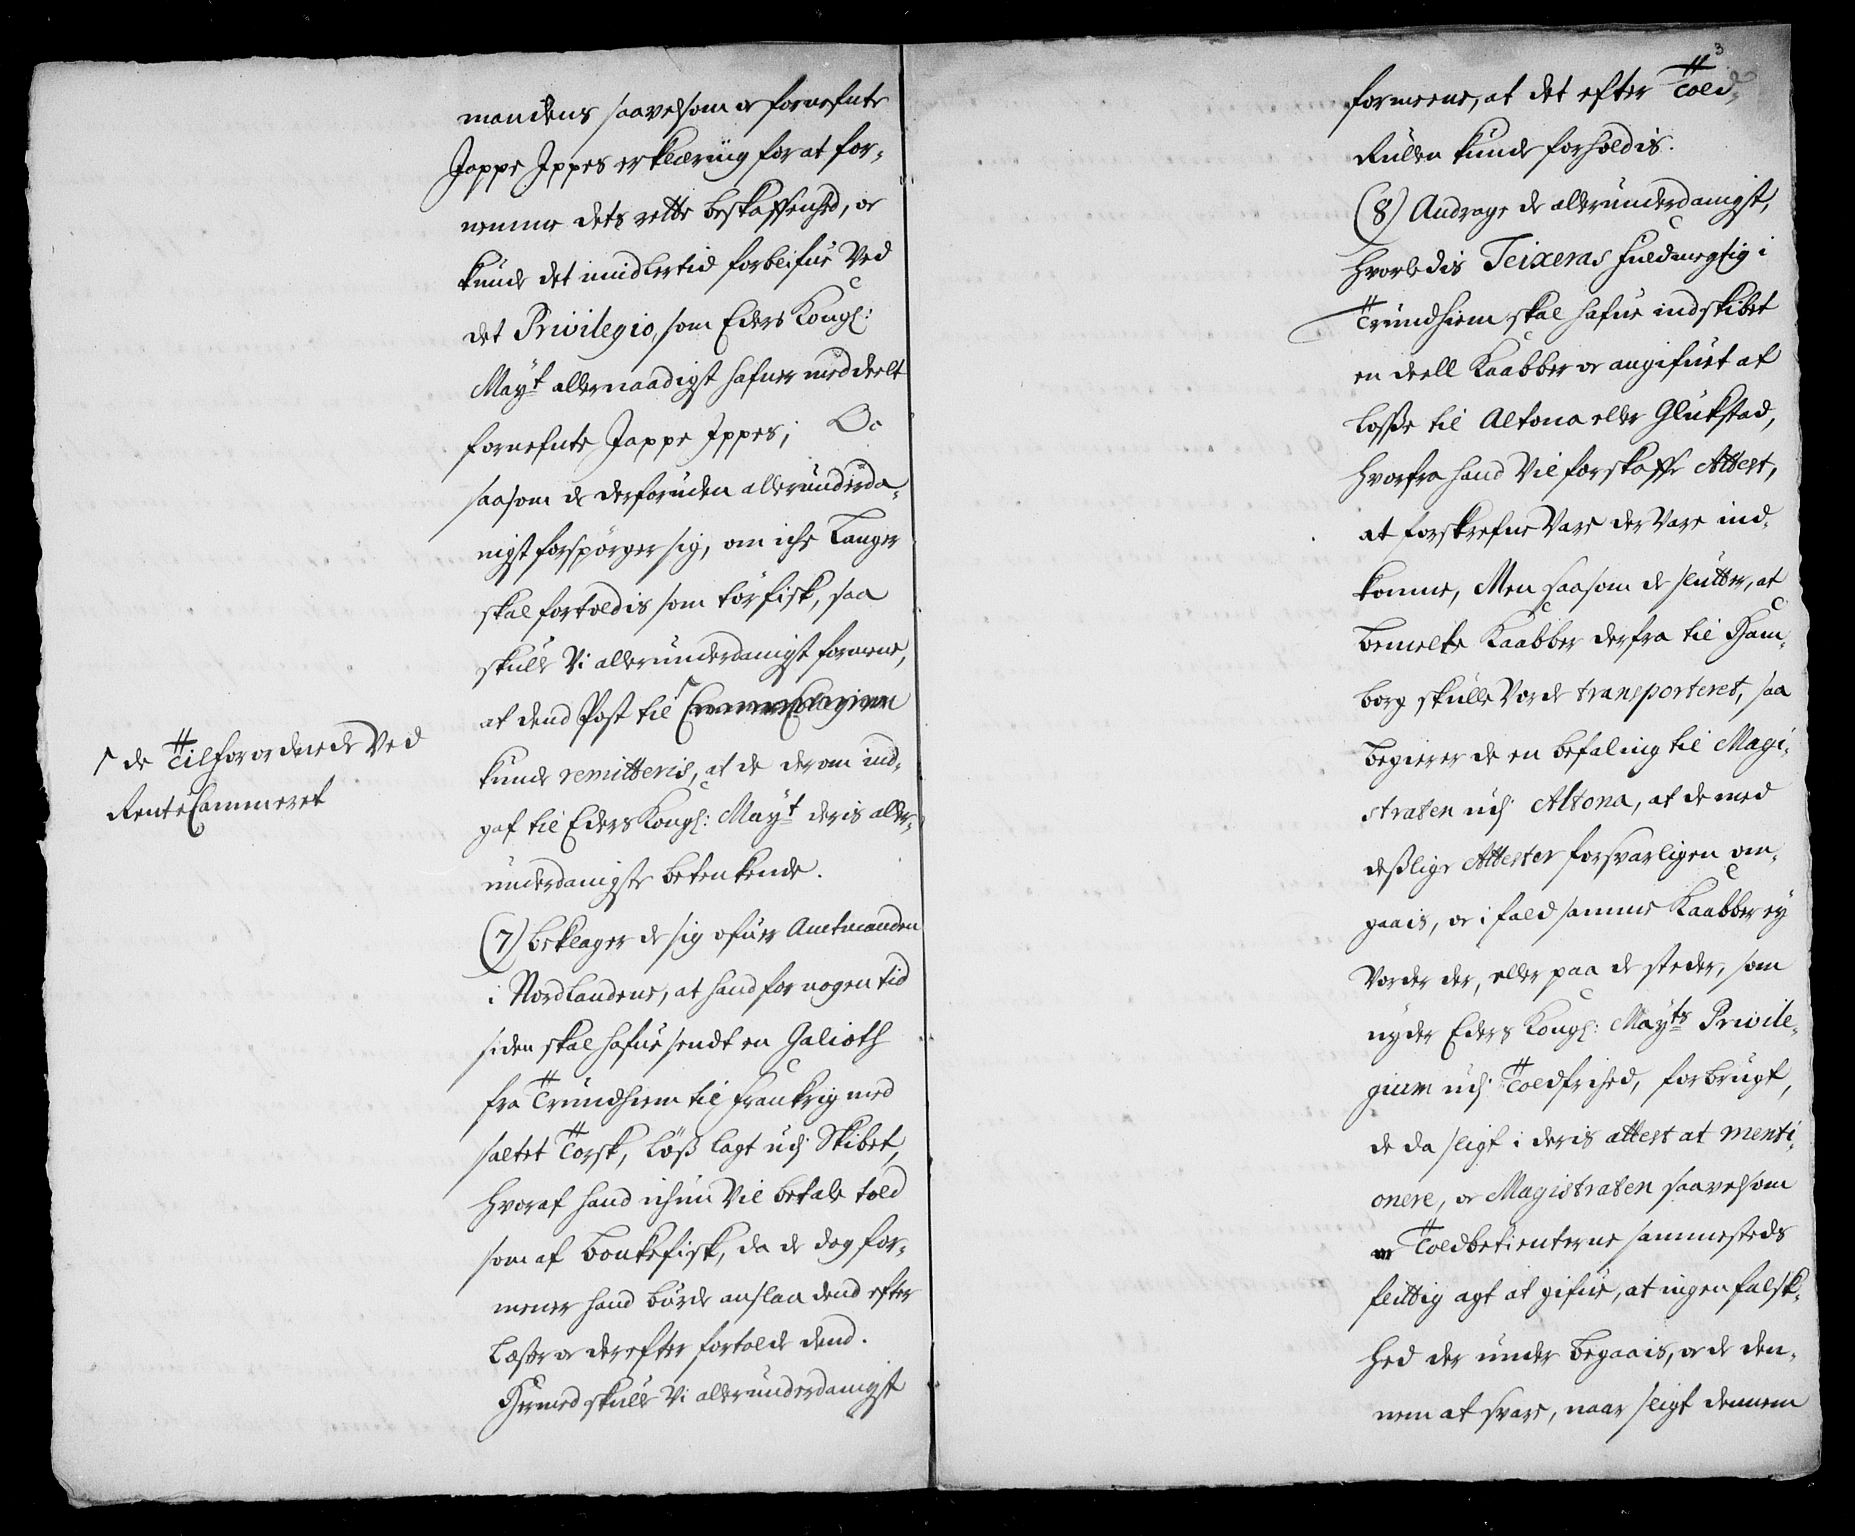 mandens saavelsom oc fornefnte
Jappe Ippes erklæring for at for-
nemme dets rette beskaffenhed, oc
kunde det imidlertid forblifue Ved
det Privilegio, som Eders Kongl:
Mayt allernaadigst hafuer meddeelt
fornefnte Jappe Ippes; Oc
saasom de derforuden allerunderda-
nigst forspörger sig, om iche Langer
skal fortoldis som törfisk, saa
skulle Vi allerunderdanigst formene,
at dend Post til
kunde remitteris, at de derom ind-
gaf til Eders Kongl: Mayt deris aller-
underdanigste betenkende.
de Tilforordnede Ved
RenteCammeret
(7) beklager de sig ofuer Amtmanden
i Nordlandene, at hand for nogen tid
siden skal hafue sendt en Galioth
fra Trundhiem til Frankrig med
saltet Torsk, Löß lagt udj Skibet,
hvoraf hand ichun Vil betale told
som af bonkefisk, da de dog for-
mener hand burde anslaa dend efter
Læster oc derefter fortolde dend.
Hermed skulle Vi allerunderdanigst
3
formeene, at det efter Told-
Rullen kunde forholdis.
(8) Andrage de allerunderdanigst,
hvorledis Teixeras fuldmegtig i
Trundhiem skal hafue indskibet
en deell Kaabber oc angifuet at
losse til Altona eller Glükstad,
hvorfra hand Vil forskaffe Attest,
at forskrefne Vare der Vare ind-
komne, Men saasom de slutter, at
bemelte Kaabber derfra til Ham-
borg skulle Vorde transporteret, saa
begierer de en befaling til Magi-
straten udj Altona, at de med
deßlige Attester forsvarligen om-
gaais, oc i fald samme Kaabber ey
Vorder der, eller paa de steder, som
nyder Eders Kongl: Mayts Privile-
gium udj Toldfrihed, forbrugt,
de da sligt i deris attest at menti-
onere, oc Magistraten saavelsom
Toldbetienterne sammesteds
flittig agt at gifue, at ingen falsk-
hed der under begaais, oc de den-
nem at svare, naar sligt dennem